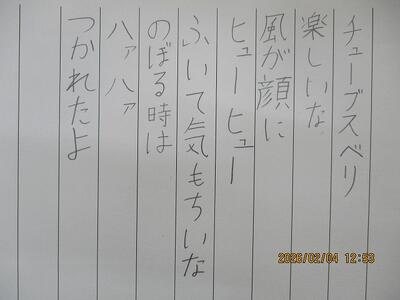 チューブスベリ
楽しいな
風が顔に
ヒューヒュー
ふいて気もちいな
のぼる時は
ハァハァ
つかれたよ
2026/02/04 12:53